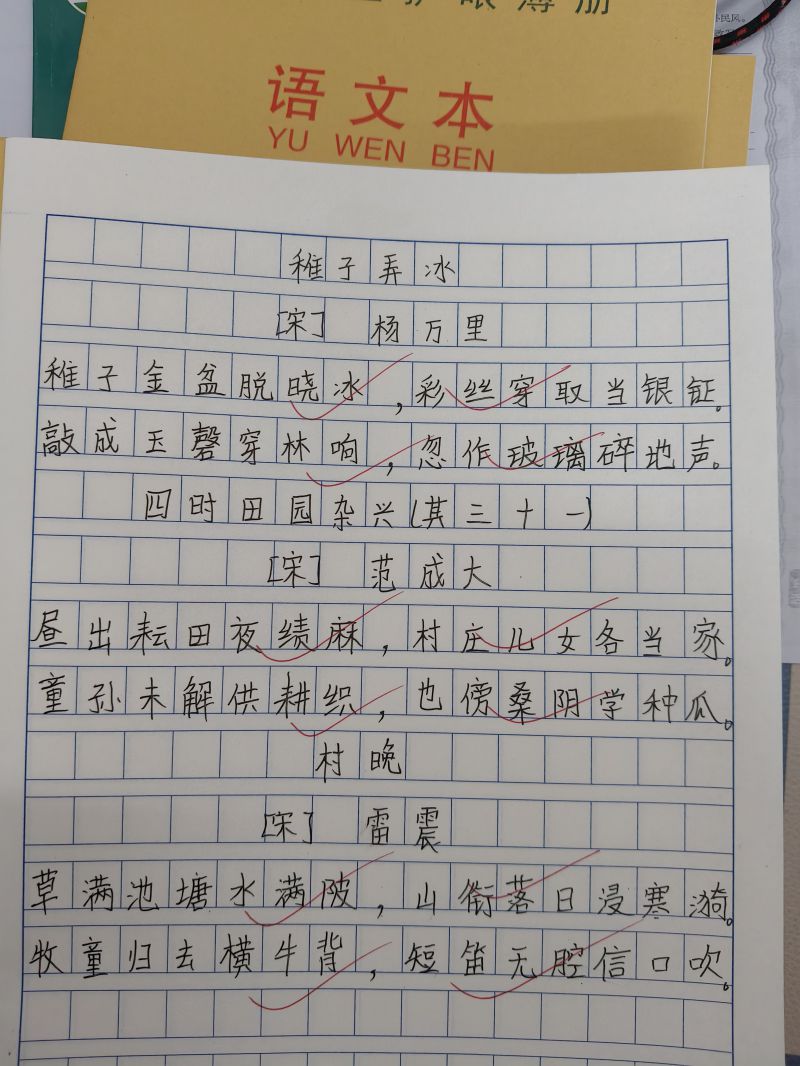 护眼薄册
民风。
语文本
YU WEN BEN
稚子弄冰
[宋] 杨万里
稚子金盆脱晓冰，彩丝穿取当银钲。
敲成玉磬穿林响，忽作玻璃碎地声。
四时田园杂兴(其三十一)
[宋] 范成大
昼出耘田夜绩麻，村庄儿女各当家。
童孙未解供耕织，也傍桑阴学种瓜。
村晚
[宋] 雷震
草满池塘水满陂，山衔落日浸寒漪。
牧童归去横牛背，短笛无腔信口吹。